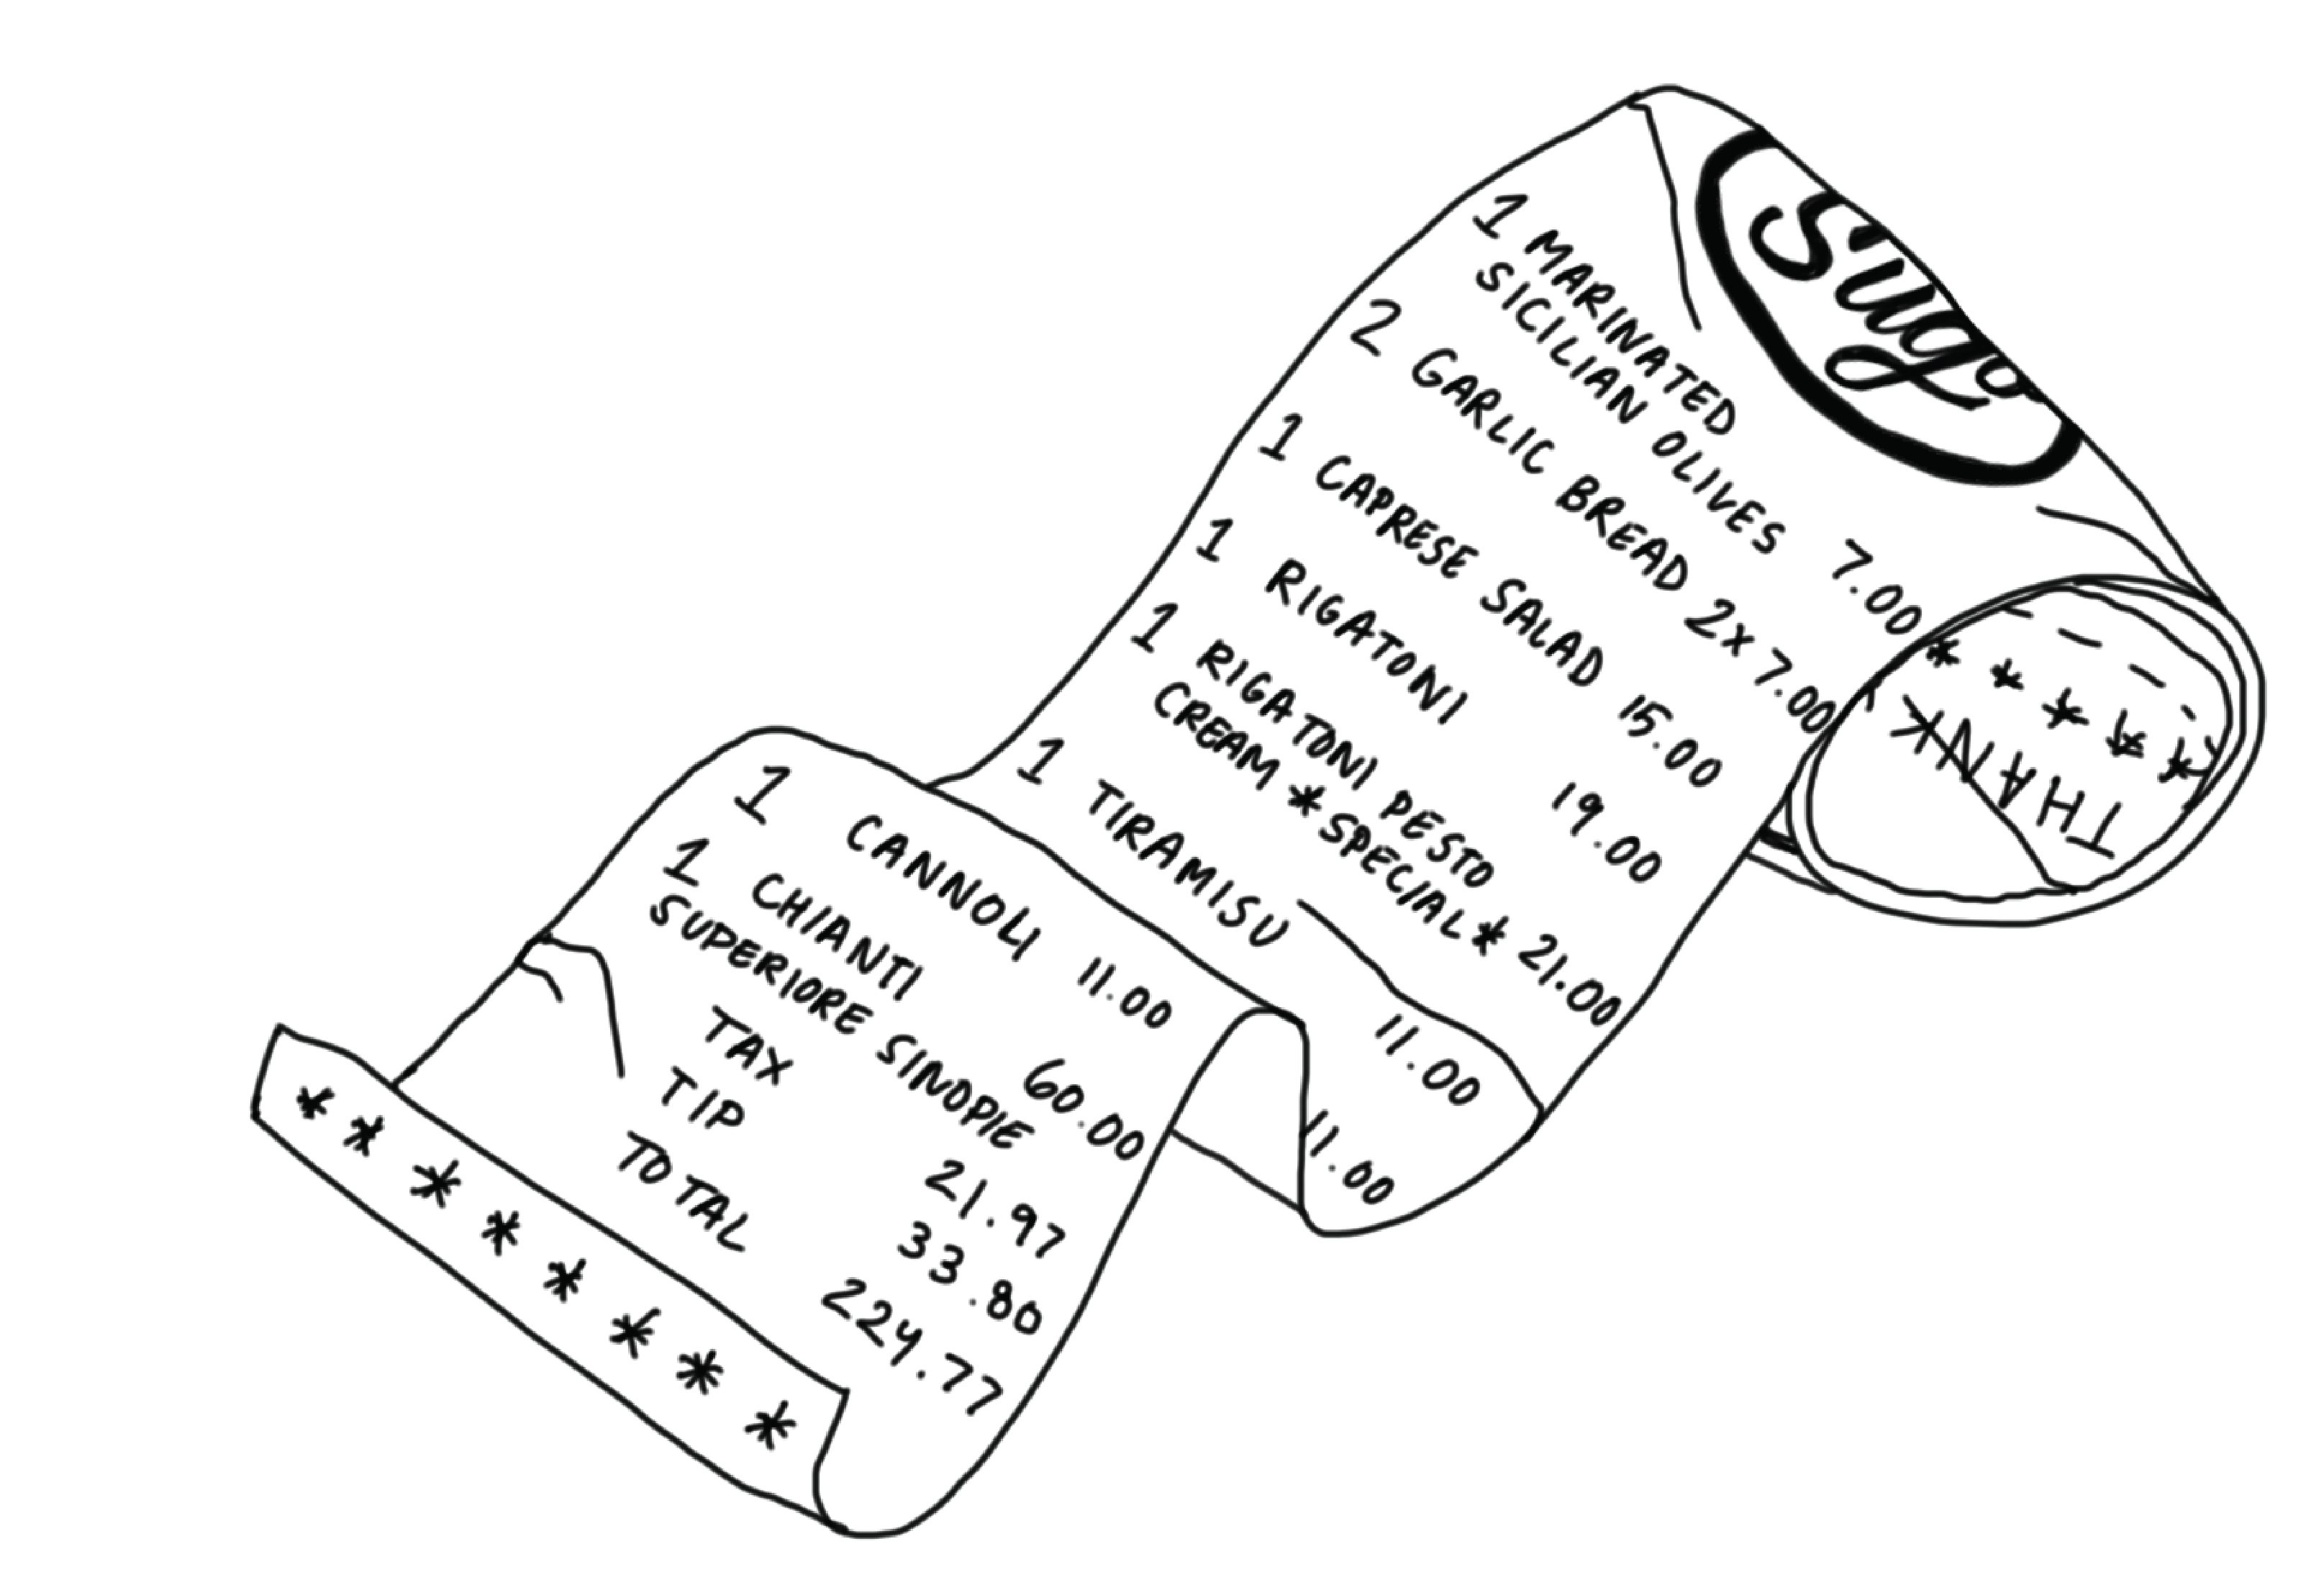 Sugo
1 MARINATED
SICILIAN OLIVES 7.00
2 GARLIC BREAD 2x7.00
1 CAPRESE SALAD 15.00
1 RIGATONI 19.00
1 RIGATONI PESTO
CREAM *SPECIAL* 21.00
1 TIRAMISU 11.00
11.00
1 CANNOLI 11.00
1 CHIANTI
SUPERIORE SINOPIE 60.00
TAX 21.97
TIP 33.80
TOTAL 224.77
* * * * * * * *
* * * * *
THANK